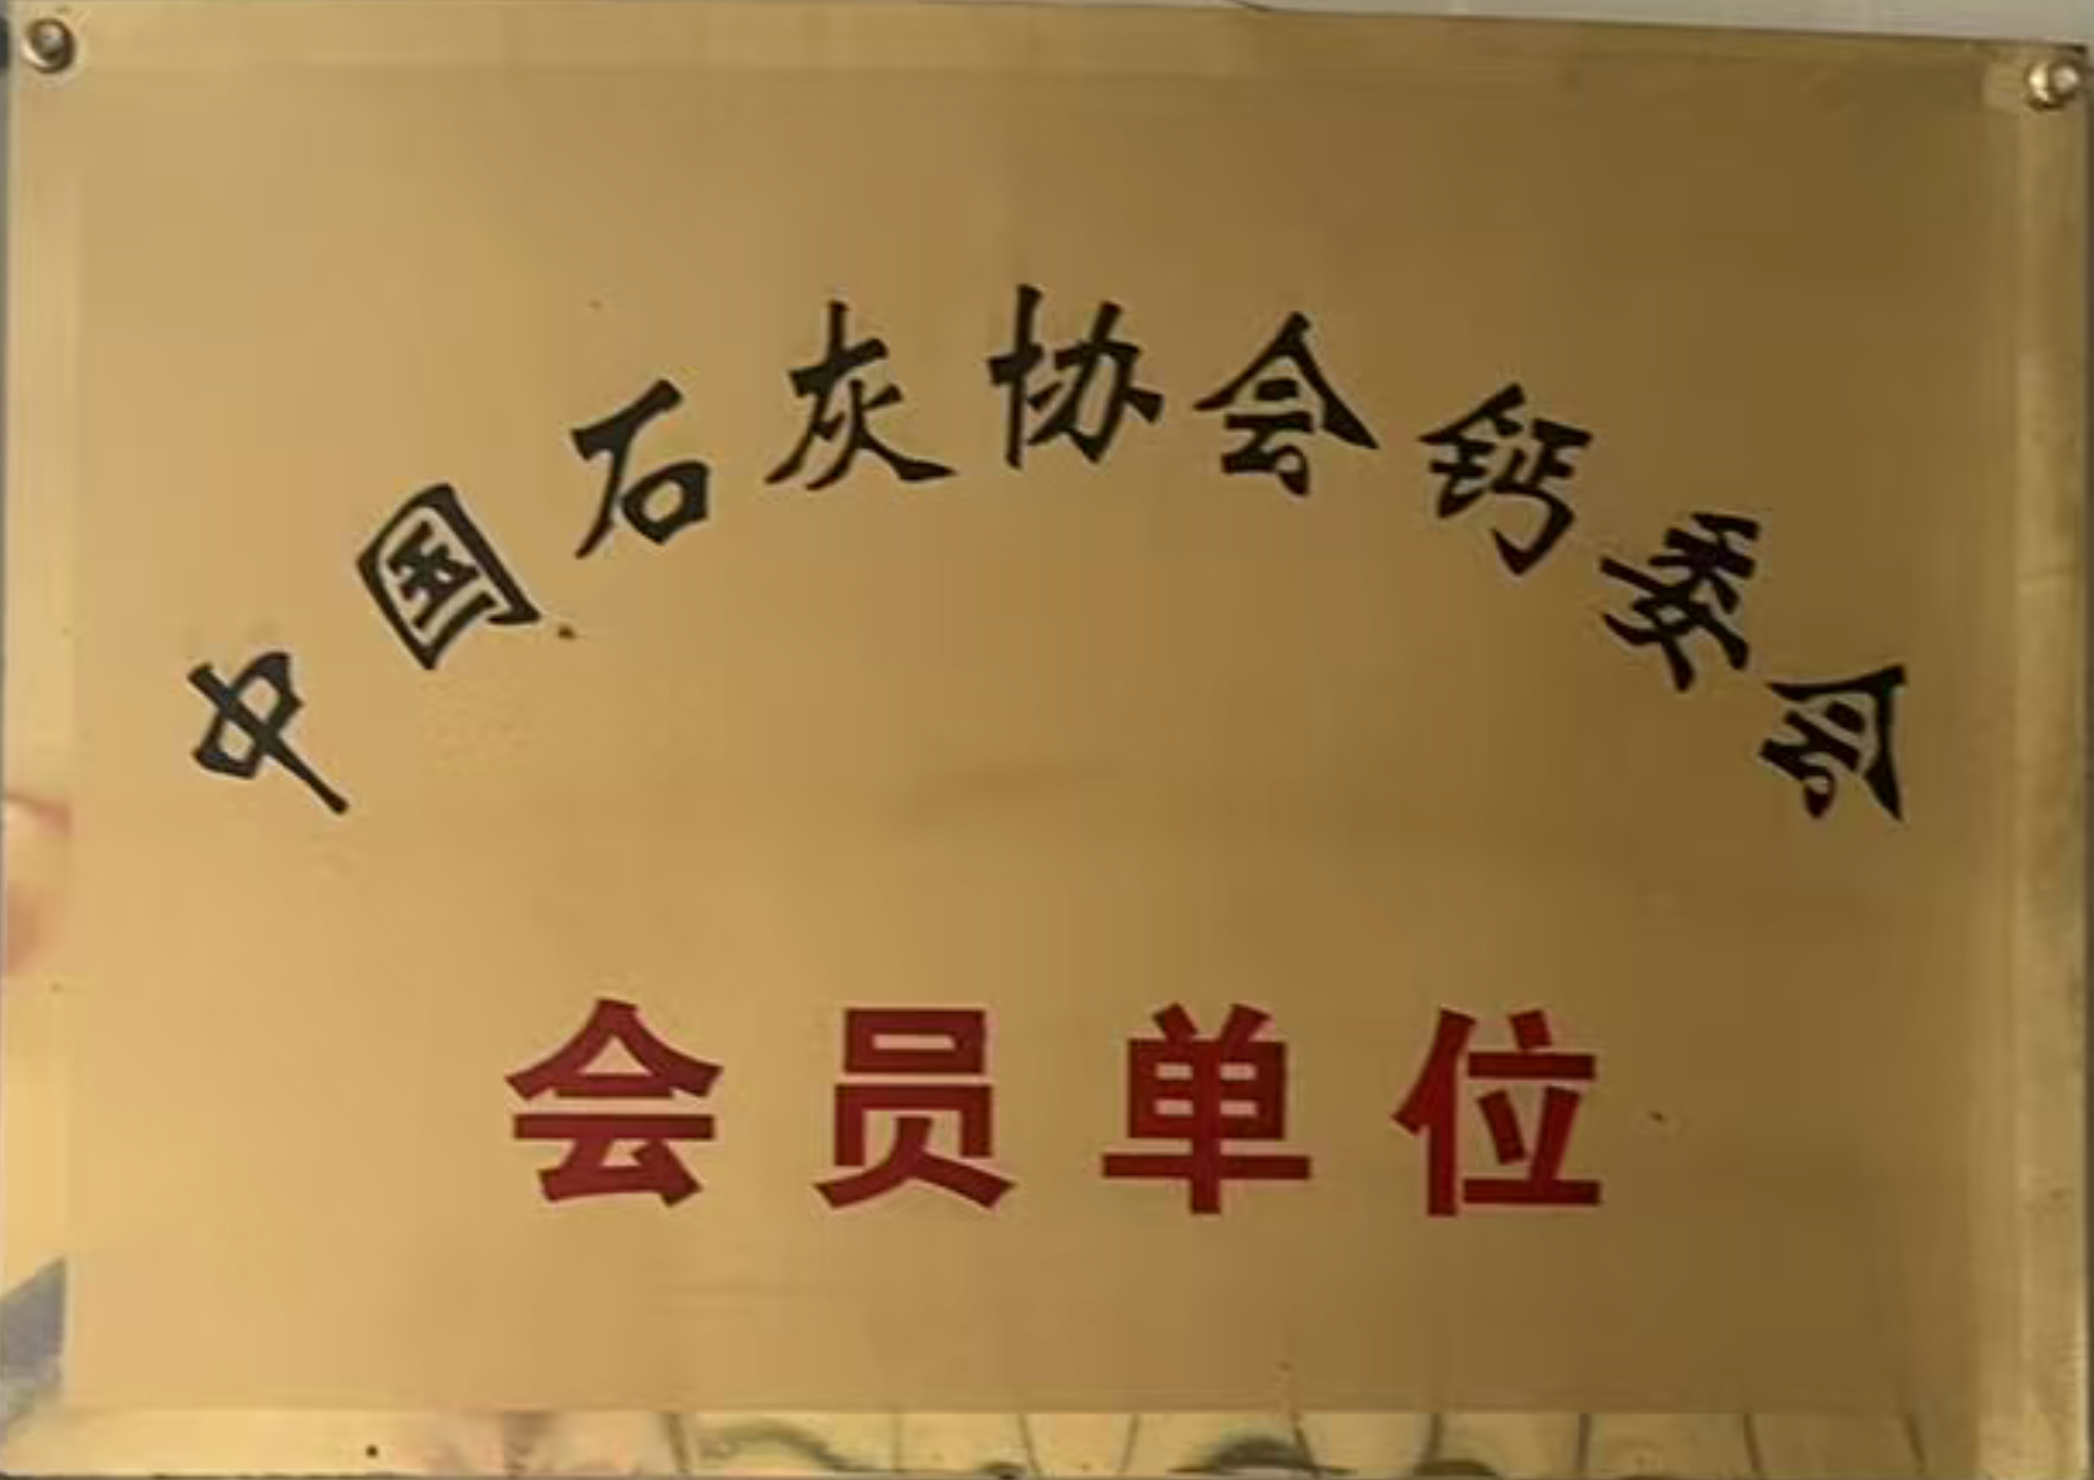 中国石灰协会钙委会
会员单位